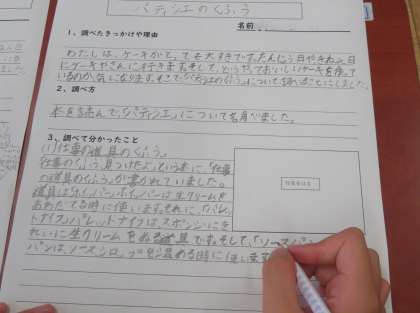 パティシエのくふう
名前
1、調べたきっかけや理由
わたしは、ケーキがとっても大すきです。たん生日やきねん日
にケーキやさんに行きます。そして、どうやっておいしいケーキを作って
いるのか気になります。そこで「パティシエのくふう」について調べることにしました。
2、調べ方
本を読んで、「パティシエ」について調べました。
3、調べて分かったこと
(1)仕事の道具のくふう。
「仕事のくふう、見つけたよ」という本に、「仕事
の道具のくふう」が書かれていました。
道具は「ホイパー」ホイパーは生クリームを
あわだてる時に使います。それに、「パレッ
トナイフ」パレットナイフはスポンジにき
れいに生クリームをぬる道具です。そして、「ソースパン
パンは、ソースシロップを温める時に使います